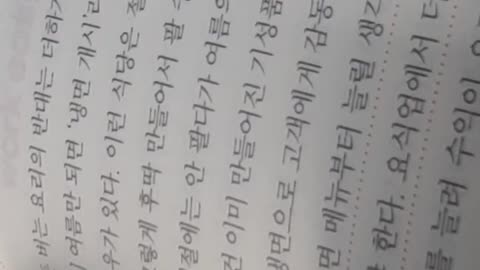 버는 요리의 반대는 더하기
여름만 되면 '냉면 개시'라
우가 있다. 이런 식당은 절
렇게 후딱 만들어서 팔
절에는 안 팔다가 여름의
이미 만들어진 기성품
냉면으로 고객에게 감동
면 메뉴부터 늘릴 생각
한다. 요식업에서 더
를 늘려 수익이